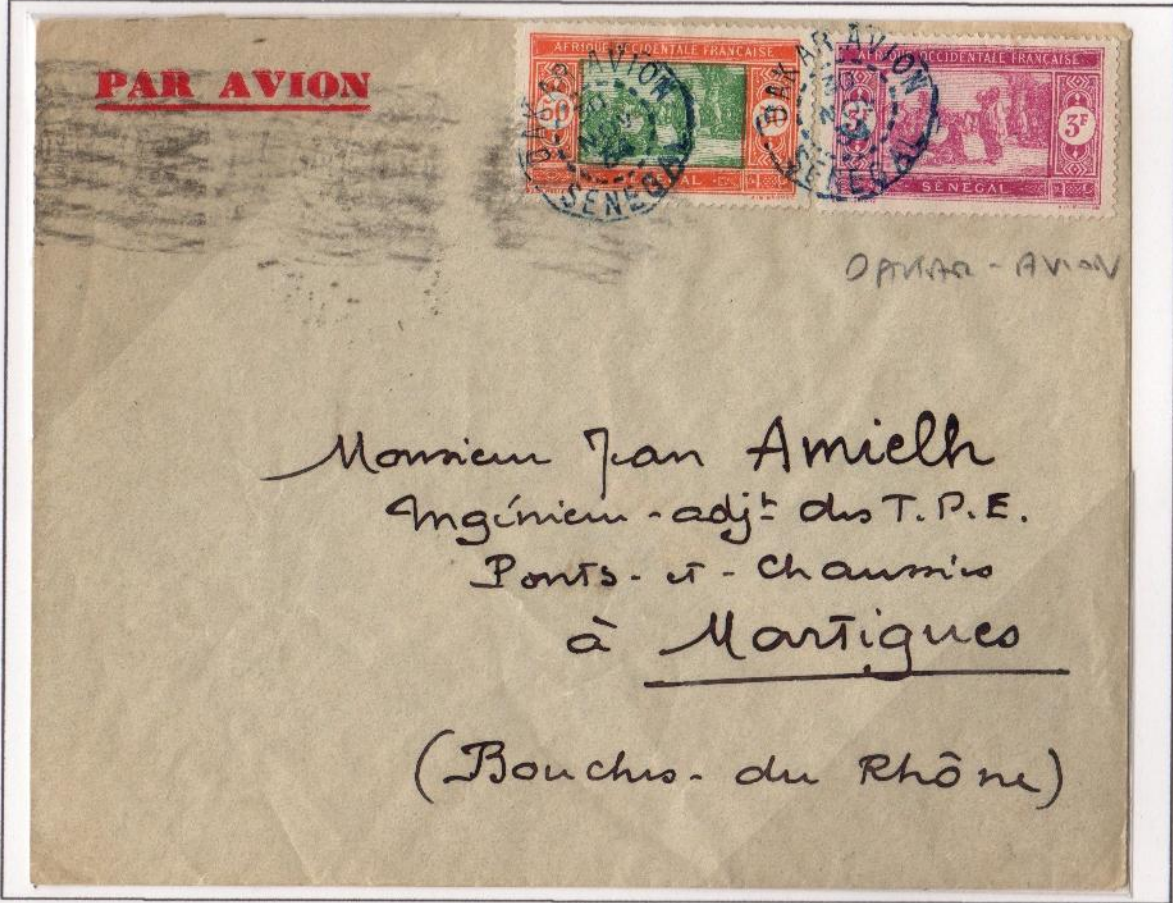 PAR AVION
AFRIQUE OCCIDENTALE FRANÇAISE
50
SENEGAL
DAKAR AVION
SENEGAL
AFRIQUE OCCIDENTALE FRANÇAISE
3F
3F
SÉNÉGAL
DAKAR AVION
SENEGAL
DAKAR - AVION
Monsieur Jean Amielh
Ingénieur-adjt des T.P.E.
Ponts-et-Chaussées
à Martigues
(Bouches-du Rhône)